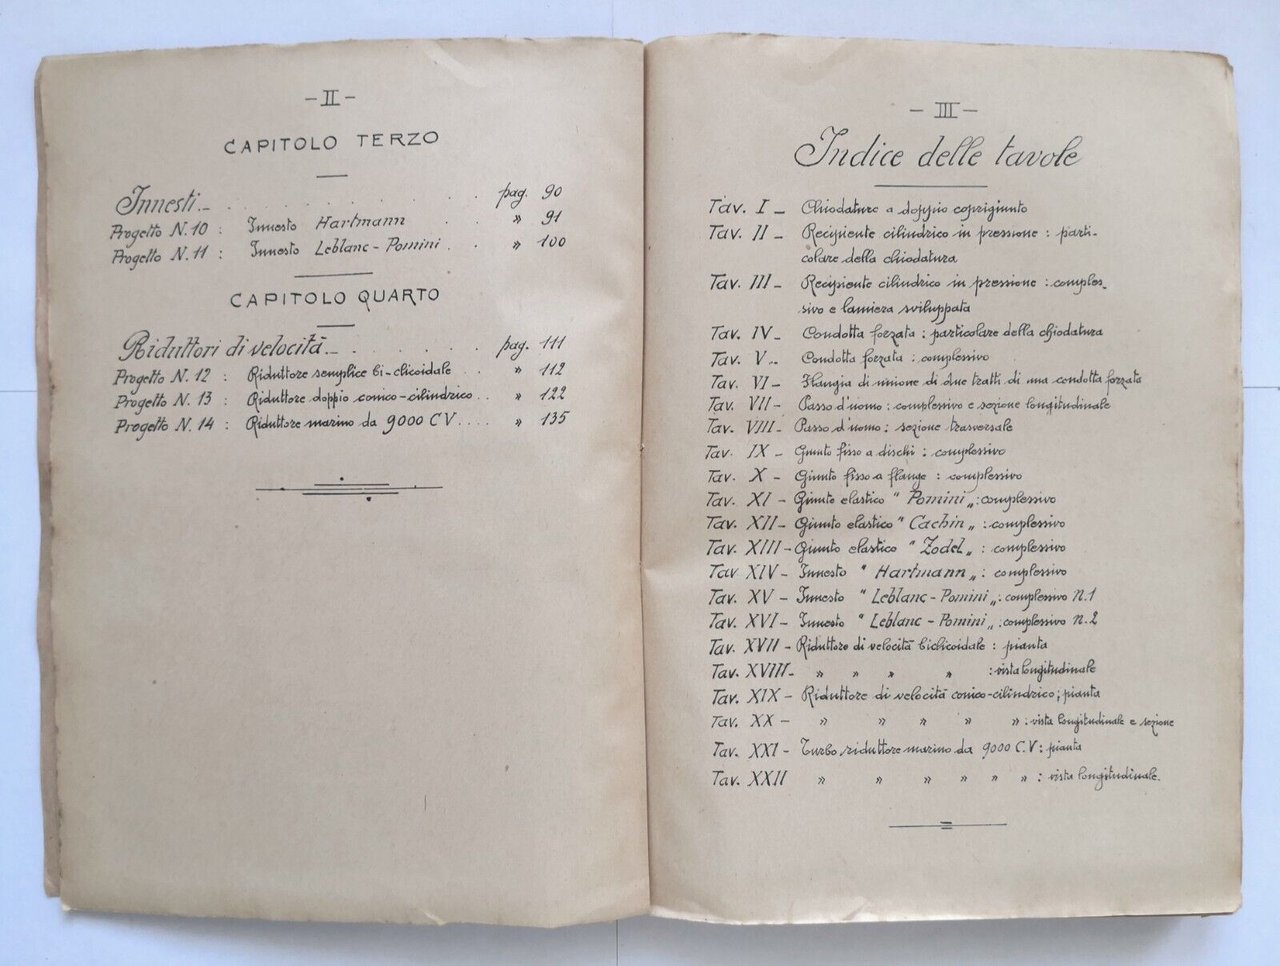 - II -
CAPITOLO TERZO
Innesti. - . . . . . . . . . pag. 90
Progetto N. 10 : Innesto Hartmann . . » 91
Progetto N. 11 : Innesto Leblanc - Pomini . . » 100
CAPITOLO QUARTO
Riduttori di velocità. - . . . . . . pag. 111
Progetto N. 12 : Riduttore semplice bi-elicoidale . . » 112
Progetto N. 13 : Riduttore doppio conico-cilindrico . . » 122
Progetto N. 14 : Riduttore marino da 9000 CV . . . . » 135
- III -
Indice delle tavole
Tav. I - Chiodature a doppio coprigiunto
Tav. II - Recipiente cilindrico in pressione : parti-
colare della chiodatura
Tav. III - Recipiente cilindrico in pressione : comples-
sivo e lamiera sviluppata
Tav. IV - Condotta forzata : particolare della chiodatura
Tav. V - Condotta forzata : complessivo
Tav. VI - Flangia di unione di due tratti di una condotta forzata
Tav. VII - Passo d'uomo : complessivo e sezione longitudinale
Tav. VIII - Passo d'uomo : sezione trasversale
Tav. IX - Giunto fisso a dischi : complessivo
Tav. X - Giunto fisso a flange : complessivo
Tav. XI - Giunto elastico " Pomini „ : complessivo
Tav. XII - Giunto elastico " Cachin „ : complessivo
Tav. XIII - Giunto elastico " Zodel „ : complessivo
Tav XIV - Innesto " Hartmann „ : complessivo
Tav. XV - Innesto " Leblanc - Pomini „ : complessivo n. 1
Tav. XVI - Innesto " Leblanc - Pomini „ : complessivo n. 2
Tav. XVII - Riduttore di velocità bielicoidale : pianta
Tav. XVIII - » » » » : vista longitudinale
Tav. XIX - Riduttore di velocità conico-cilindrico ; pianta
Tav. XX - » » » » » : vista longitudinale e sezione
Tav. XXI - Turbo riduttore marino da 9000 C.V : pianta
Tav. XXII » » » » » » : vista longitudinale.